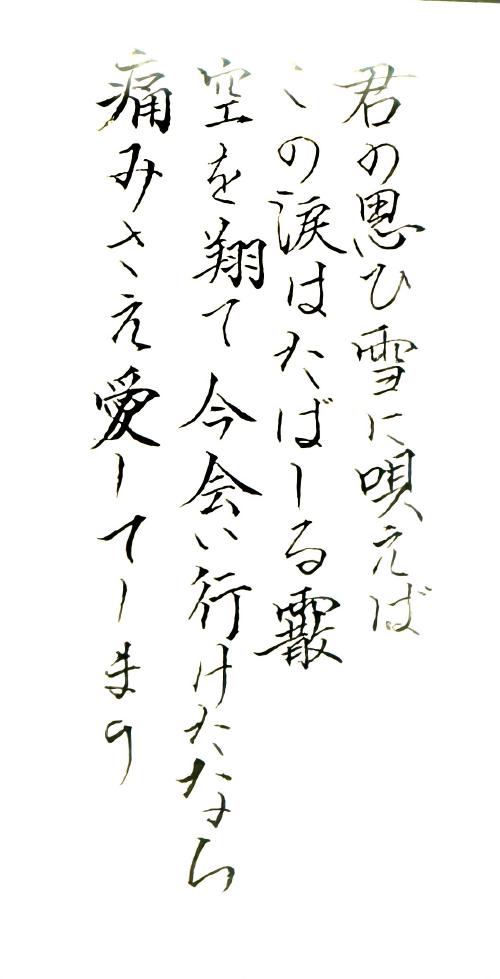 君の思ひ雪に唄えば
この涙はたばしる霰
空を翔て今会い行けたなら
痛みさえ愛してしまう